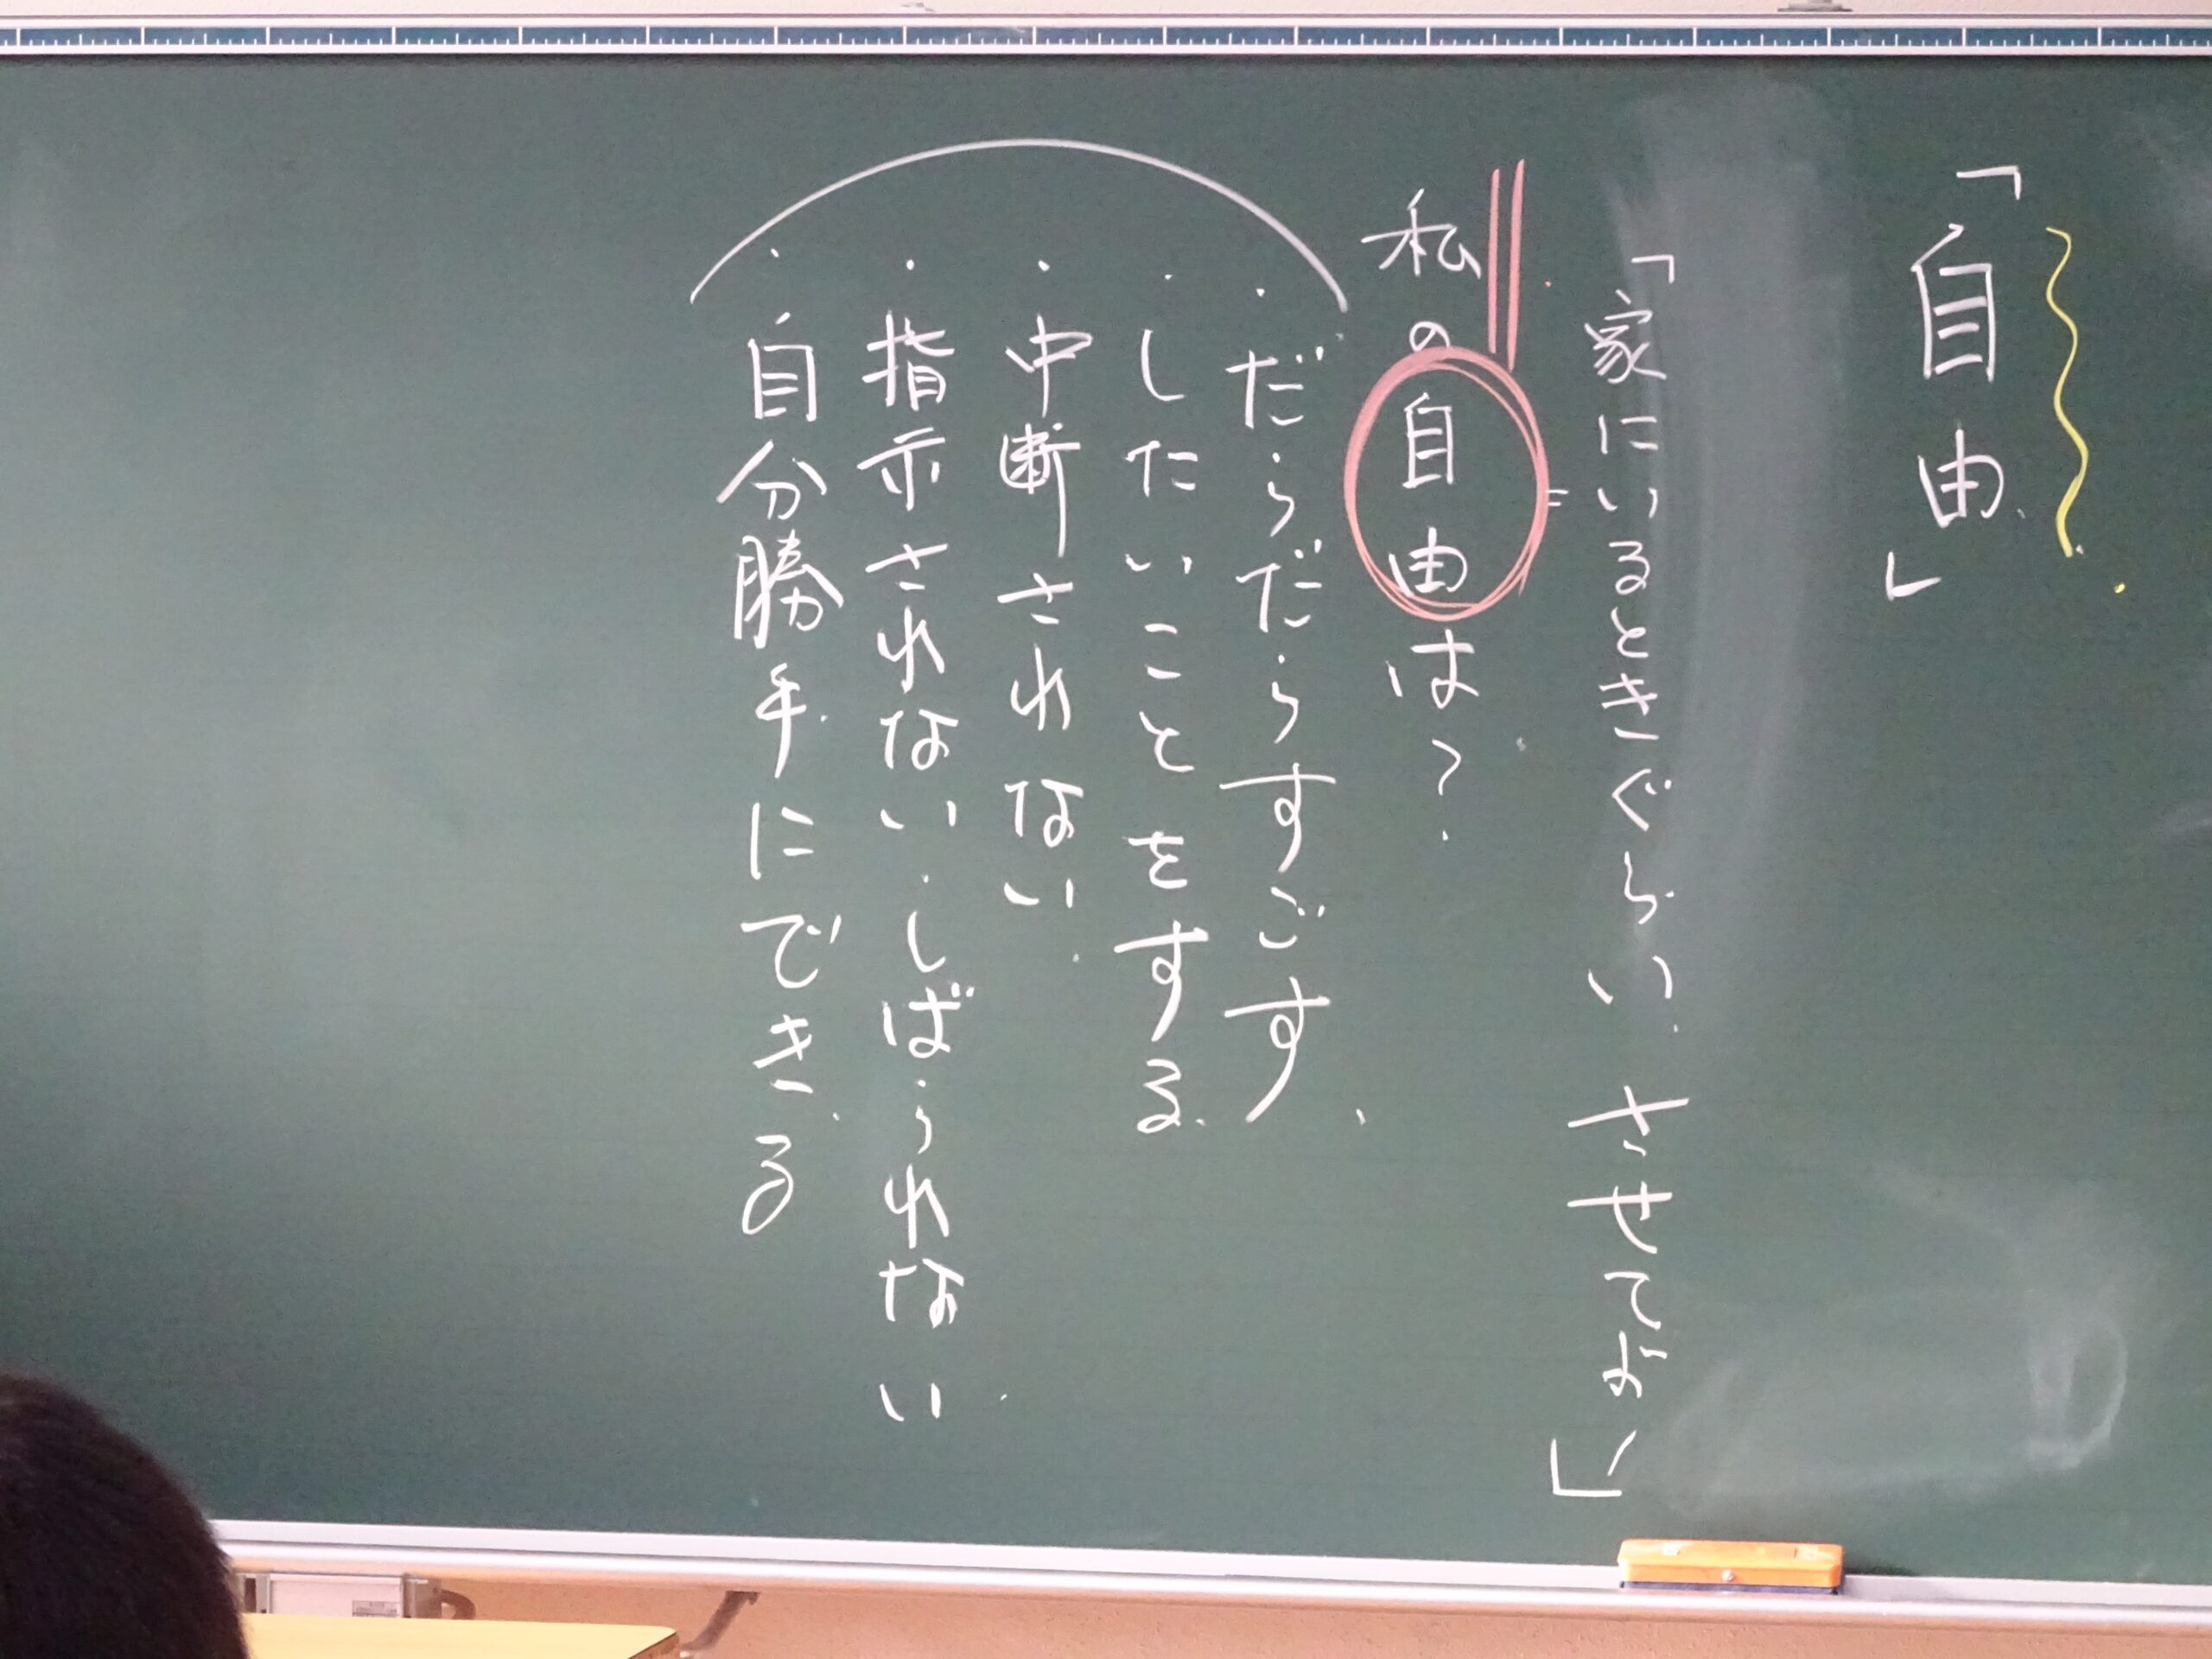 「自由」
「家にいるときぐらい させてよ!」
私の自由は?
・だらだらすごす
・したいことをする
・中断されない
・指示されない・しばられない
・自分勝手にできる